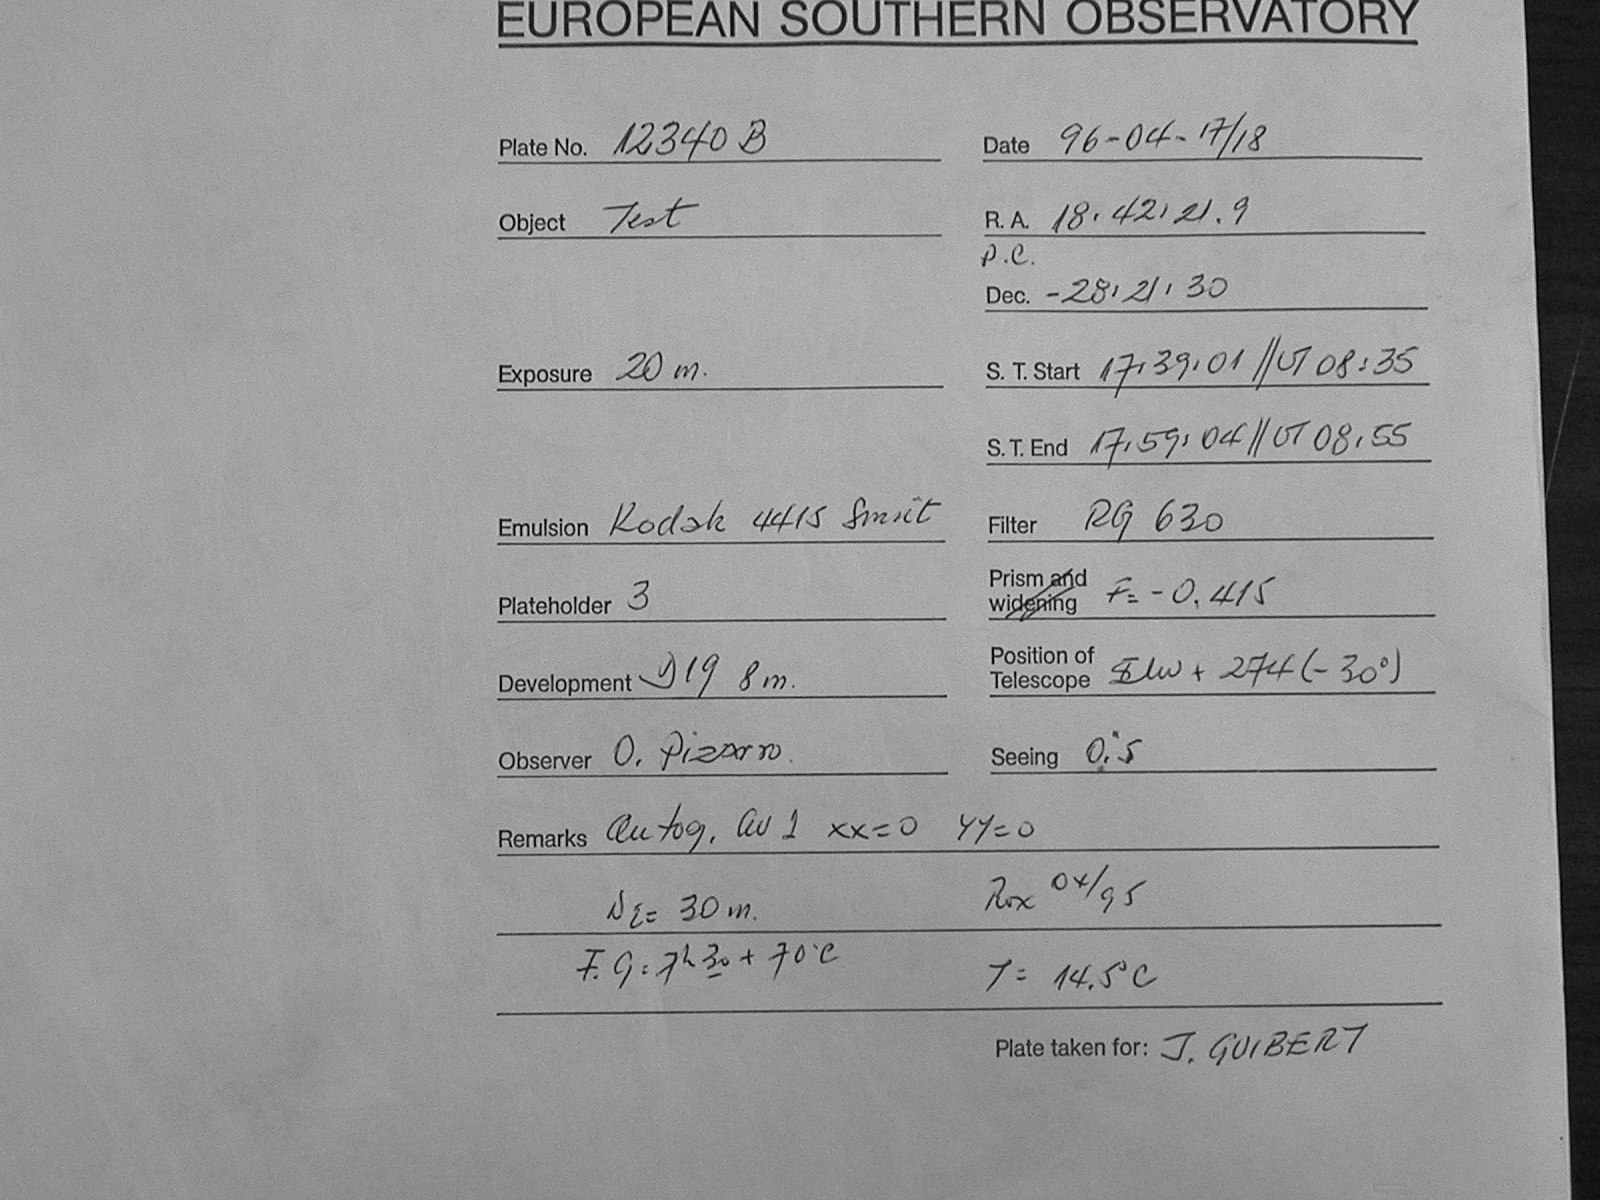 EUROPEAN SOUTHERN OBSERVATORY
Plate No. 12340 B Date 96-04-17/18
Object Test R. A. 18. 42, 21.9
P.C.
Dec. -28, 21, 30
Exposure 20 m. S. T. Start 17,39,01 // UT 08:35
S. T. End 17,59,04 // UT 08,55
Emulsion Kodak 4415 Filter RG 630
Plateholder 3 Prism and widening F= -0.415
Development D19 8 m. Position of Telescope + 274 (-30°)
Observer O. Pizarro. Seeing 0."5
Remarks Autog. xx=0 YY=0
= 30 m. 04/95
F. G: 7h 30 + 70°C T= 14.5°C
Plate taken for: J. GUIBERT